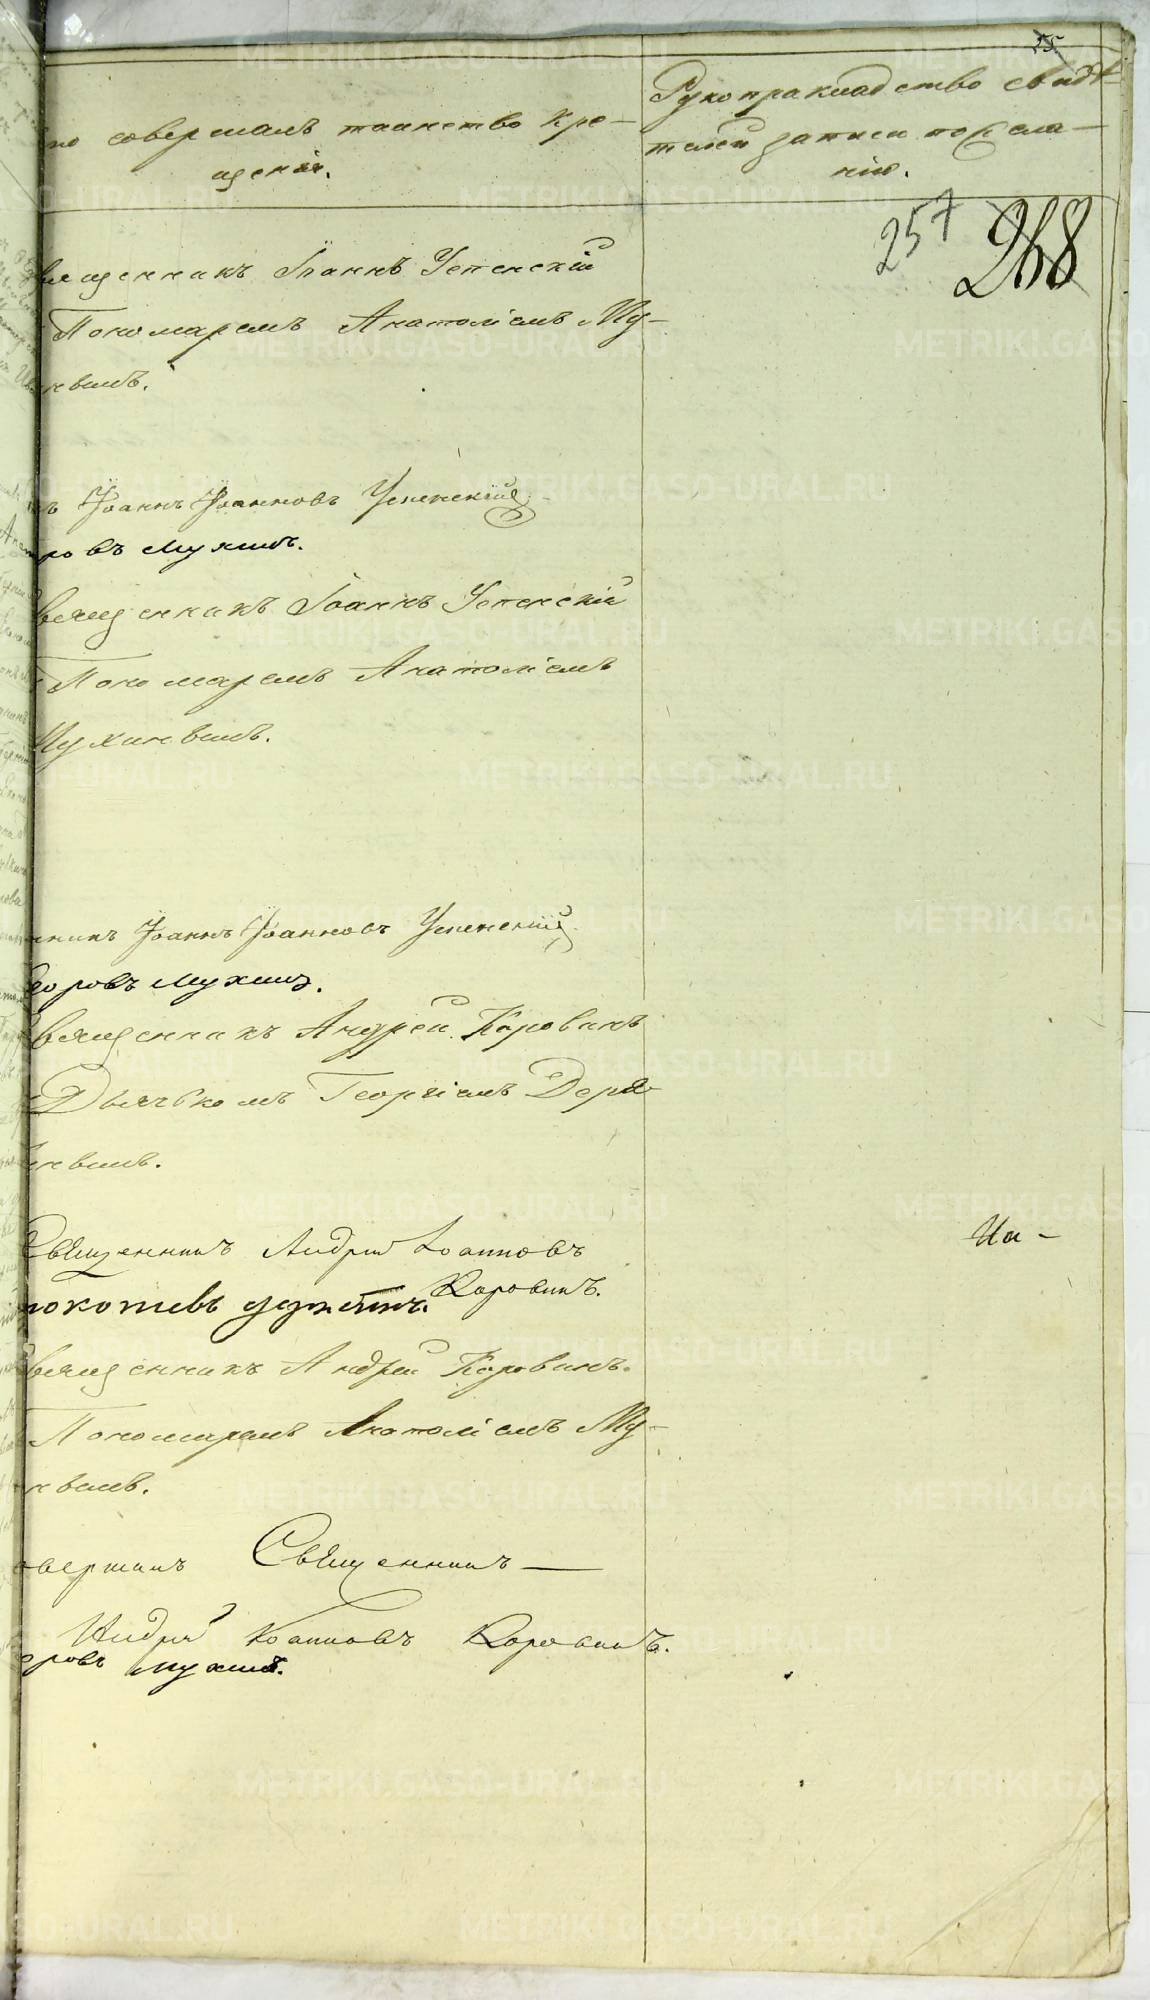 55
то совершалъ таинство кре-
щенія.
Рукоприкладство свидѣ-
телей записи по жела-
нію.
257 268
вященникъ Іоаннъ Успенскій
Пономаремъ Анатоліемъ Му-
нвымъ.
ъ Іоаннъ Іоанновъ Успенскій
ровъ Мухинъ.
вященникъ Іоаннъ Успенскій
Пономаремъ Анатоліемъ
Мухинвымъ.
нникъ Іоаннъ Іоанновъ Успенскій
доровъ Мухинъ.
вященникъ Андрей Коровинъ
Дьячкомъ Георгіемъ Деря
нвымъ.
Священникъ Андрей Іоанновъ
Коровинъ.
Ио-
вященникъ Андрей Коровинъ.
Пономаремъ Анатоліемъ Му-
нвымъ.
овершилъ Священникъ
Андрей Іоанновъ Коровинъ.
оровъ Мухинъ.
METRIKI.GASO-URAL.RU